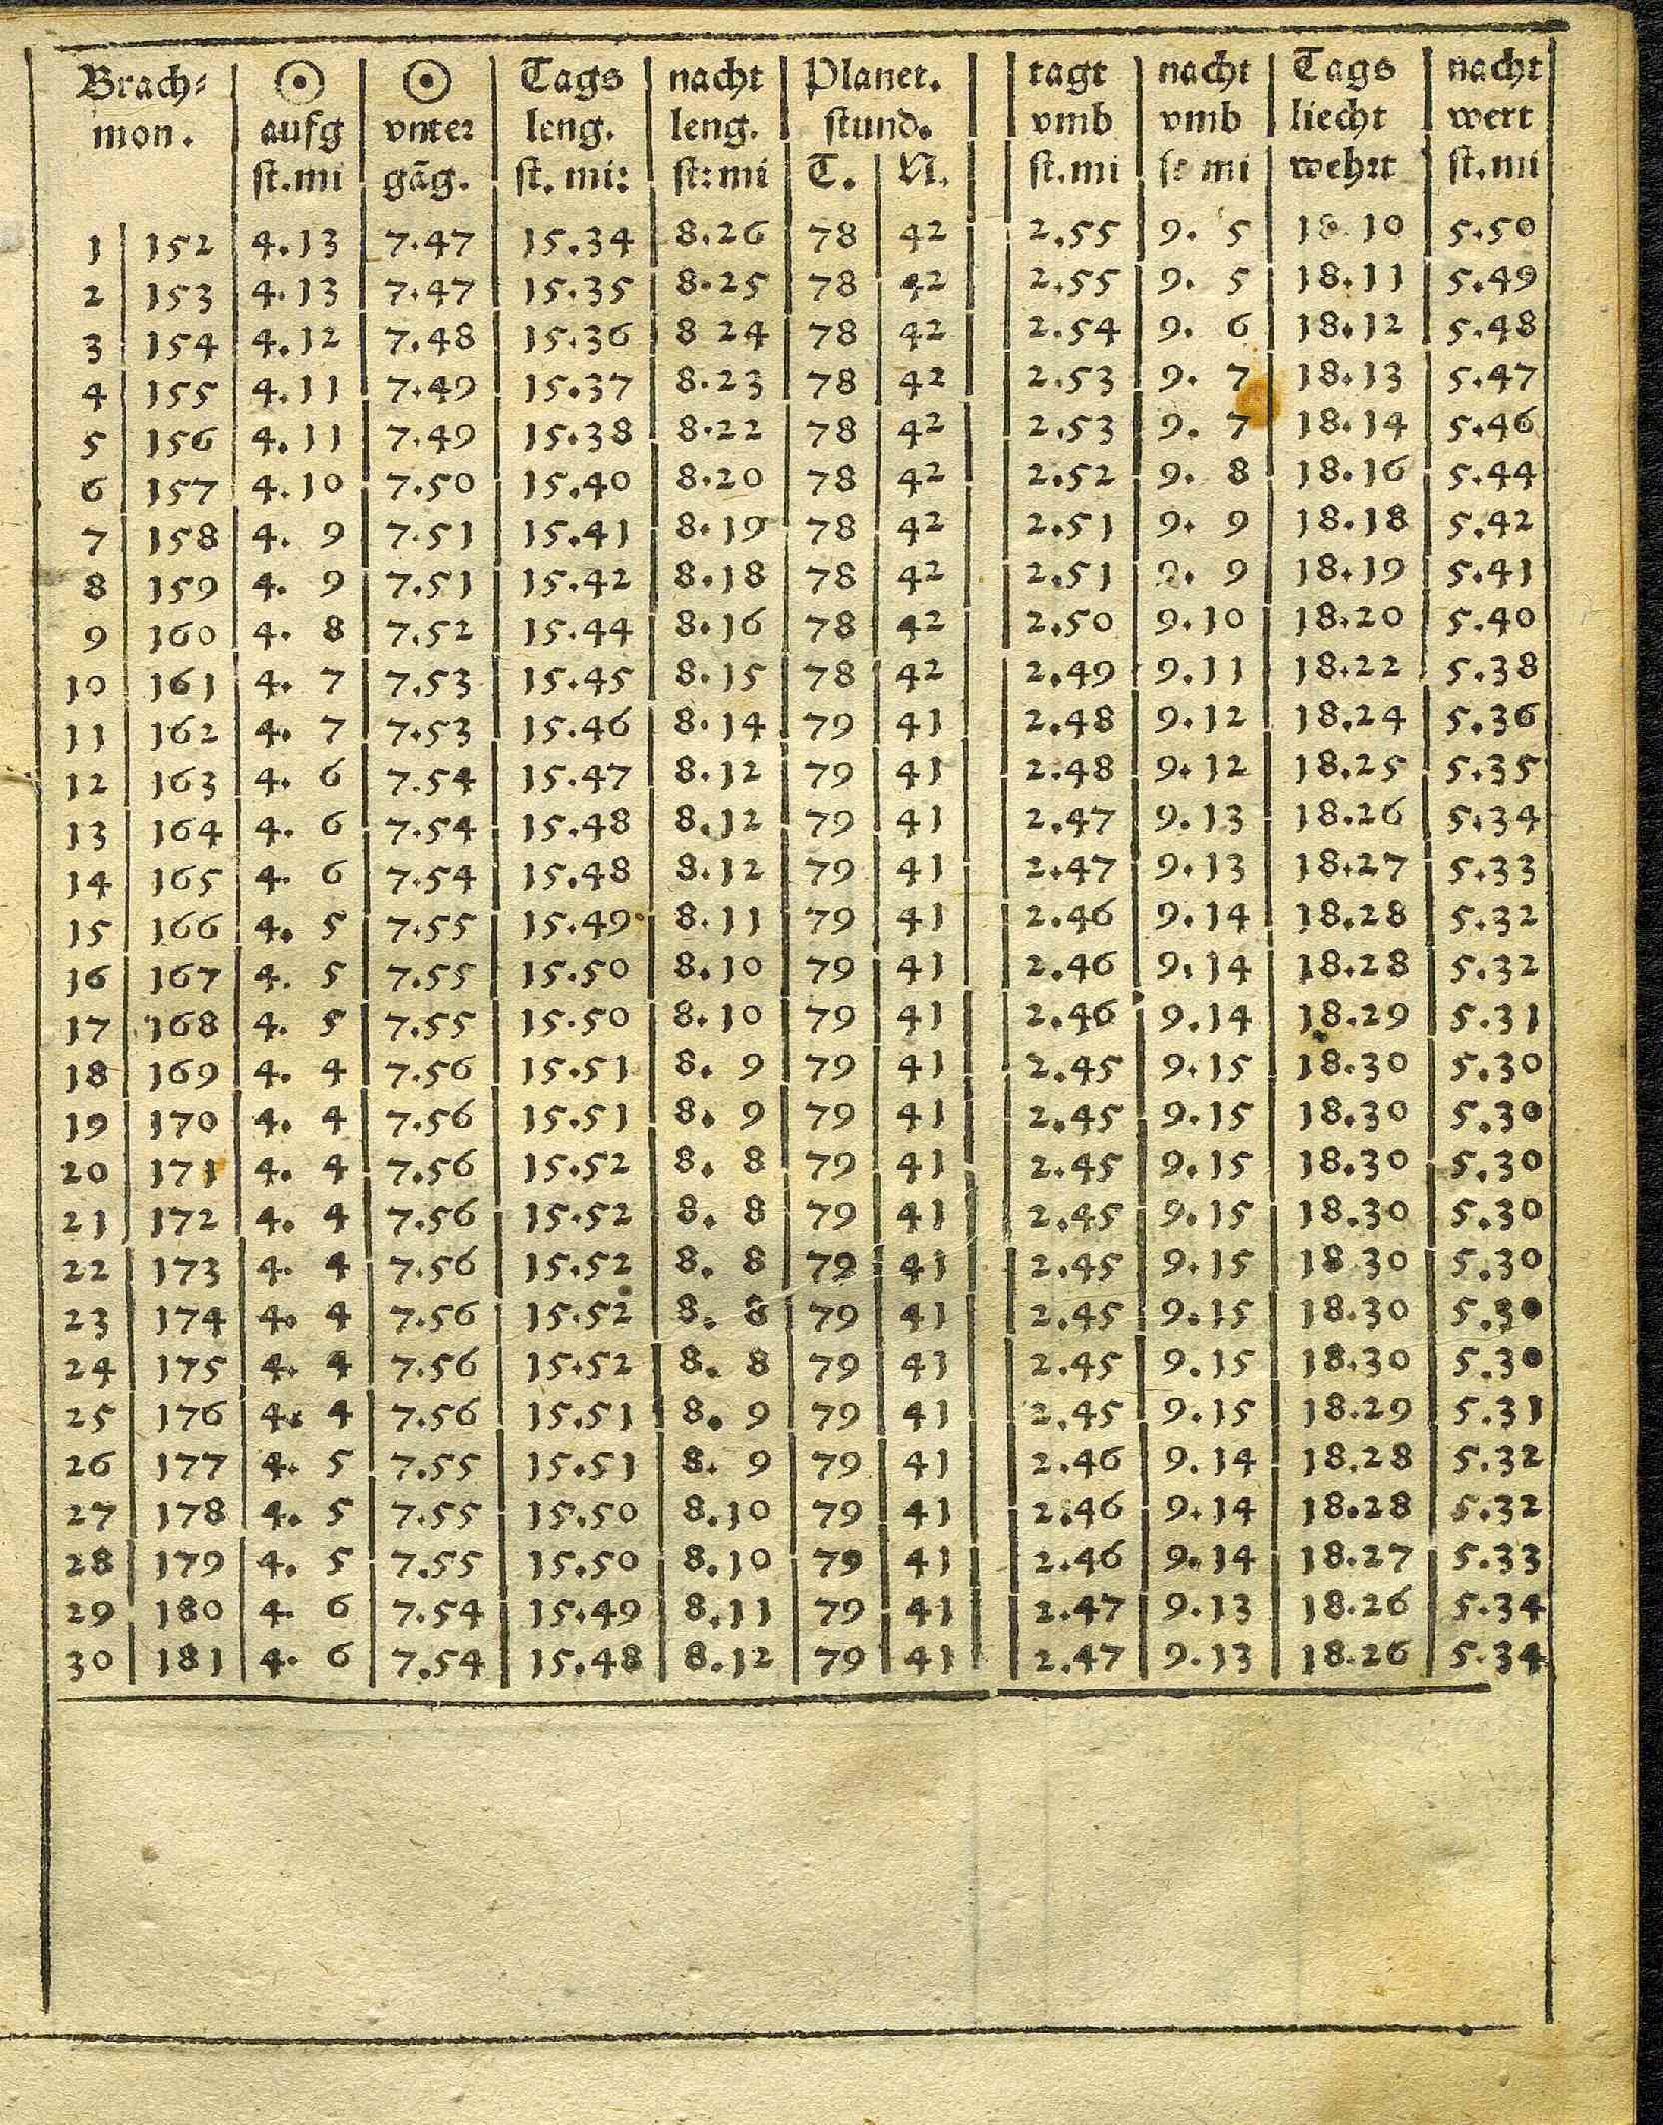 Brach⸗ ☉ ☉ Tags nacht Planet. tagt nacht Tags nacht
mon. aufg vnter leng. leng. stund. vmb vmb liecht wert
st.mi gāg. st. mi: st:mi T. N. st.mi st mi wehrt st.mi
1 152 4.13 7.47 15.34 8.26 78 42 2.55 9. 5 18 10 5.50
2 153 4.13 7.47 15.35 8.25 78 42 2.55 9. 5 18.11 5.49
3 154 4.12 7.48 15.36 8 24 78 42 2.54 9. 6 18.12 5.48
4 155 4.11 7.49 15.37 8.23 78 42 2.53 9. 7 18.13 5.47
5 156 4.11 7.49 15.38 8.22 78 42 2.53 9. 7 18.14 5.46
6 157 4.10 7.50 15.40 8.20 78 42 2.52 9. 8 18.16 5.44
7 158 4. 9 7.51 15.41 8.19 78 42 2.51 9. 9 18.18 5.42
8 159 4. 9 7.51 15.42 8.18 78 42 2.51 9. 9 18.19 5.41
9 160 4. 8 7.52 15.44 8.16 78 42 2.50 9.10 18.20 5.40
10 161 4. 7 7.53 15.45 8.15 78 42 2.49 9.11 18.22 5.38
11 162 4. 7 7.53 15.46 8.14 79 41 2.48 9.12 18.24 5.36
12 163 4. 6 7.54 15.47 8.12 79 41 2.48 9.12 18.25 5.35
13 164 4. 6 7.54 15.48 8.12 79 41 2.47 9.13 18.26 5.34
14 165 4. 6 7.54 15.48 8.12 79 41 2.47 9.13 18.27 5.33
15 166 4. 5 7.55 15.49 8.11 79 41 2.46 9.14 18.28 5.32
16 167 4. 5 7.55 15.50 8.10 79 41 2.46 9.14 18.28 5.32
17 168 4. 5 7.55 15.50 8.10 79 41 2.46 9.14 18.29 5.31
18 169 4. 4 7.56 15.51 8. 9 79 41 2.45 9.15 18.30 5.30
19 170 4. 4 7.56 15.51 8. 9 79 41 2.45 9.15 18.30 5.30
20 171 4. 4 7.56 15.52 8. 8 79 41 2.45 9.15 18.30 5.30
21 172 4. 4 7.56 15.52 8. 8 79 41 2.45 9.15 18.30 5.30
22 173 4. 4 7.56 15.52 8. 8 79 41 2.45 9.15 18 30 5.30
23 174 4. 4 7.56 15.52 8. 8 79 41 2.45 9.15 18.30 5.30
24 175 4. 4 7.56 15.52 8. 8 79 41 2.45 9.15 18.30 5.30
25 176 4. 4 7.56 15.51 8. 9 79 41 2.45 9.15 18.29 5.31
26 177 4. 5 7.55 15.51 8. 9 79 41 2.46 9.14 18.28 5.32
27 178 4. 5 7.55 15.50 8.10 79 41 2.46 9.14 18.28 5.32
28 179 4. 5 7.55 15.50 8.10 79 41 2.46 9.14 18.27 5.33
29 180 4. 6 7.54 15.49 8.11 79 41 2.47 9.13 18.26 5.34
30 181 4. 6 7.54 15.48 8.12 79 41 2.47 9.13 18.26 5.34